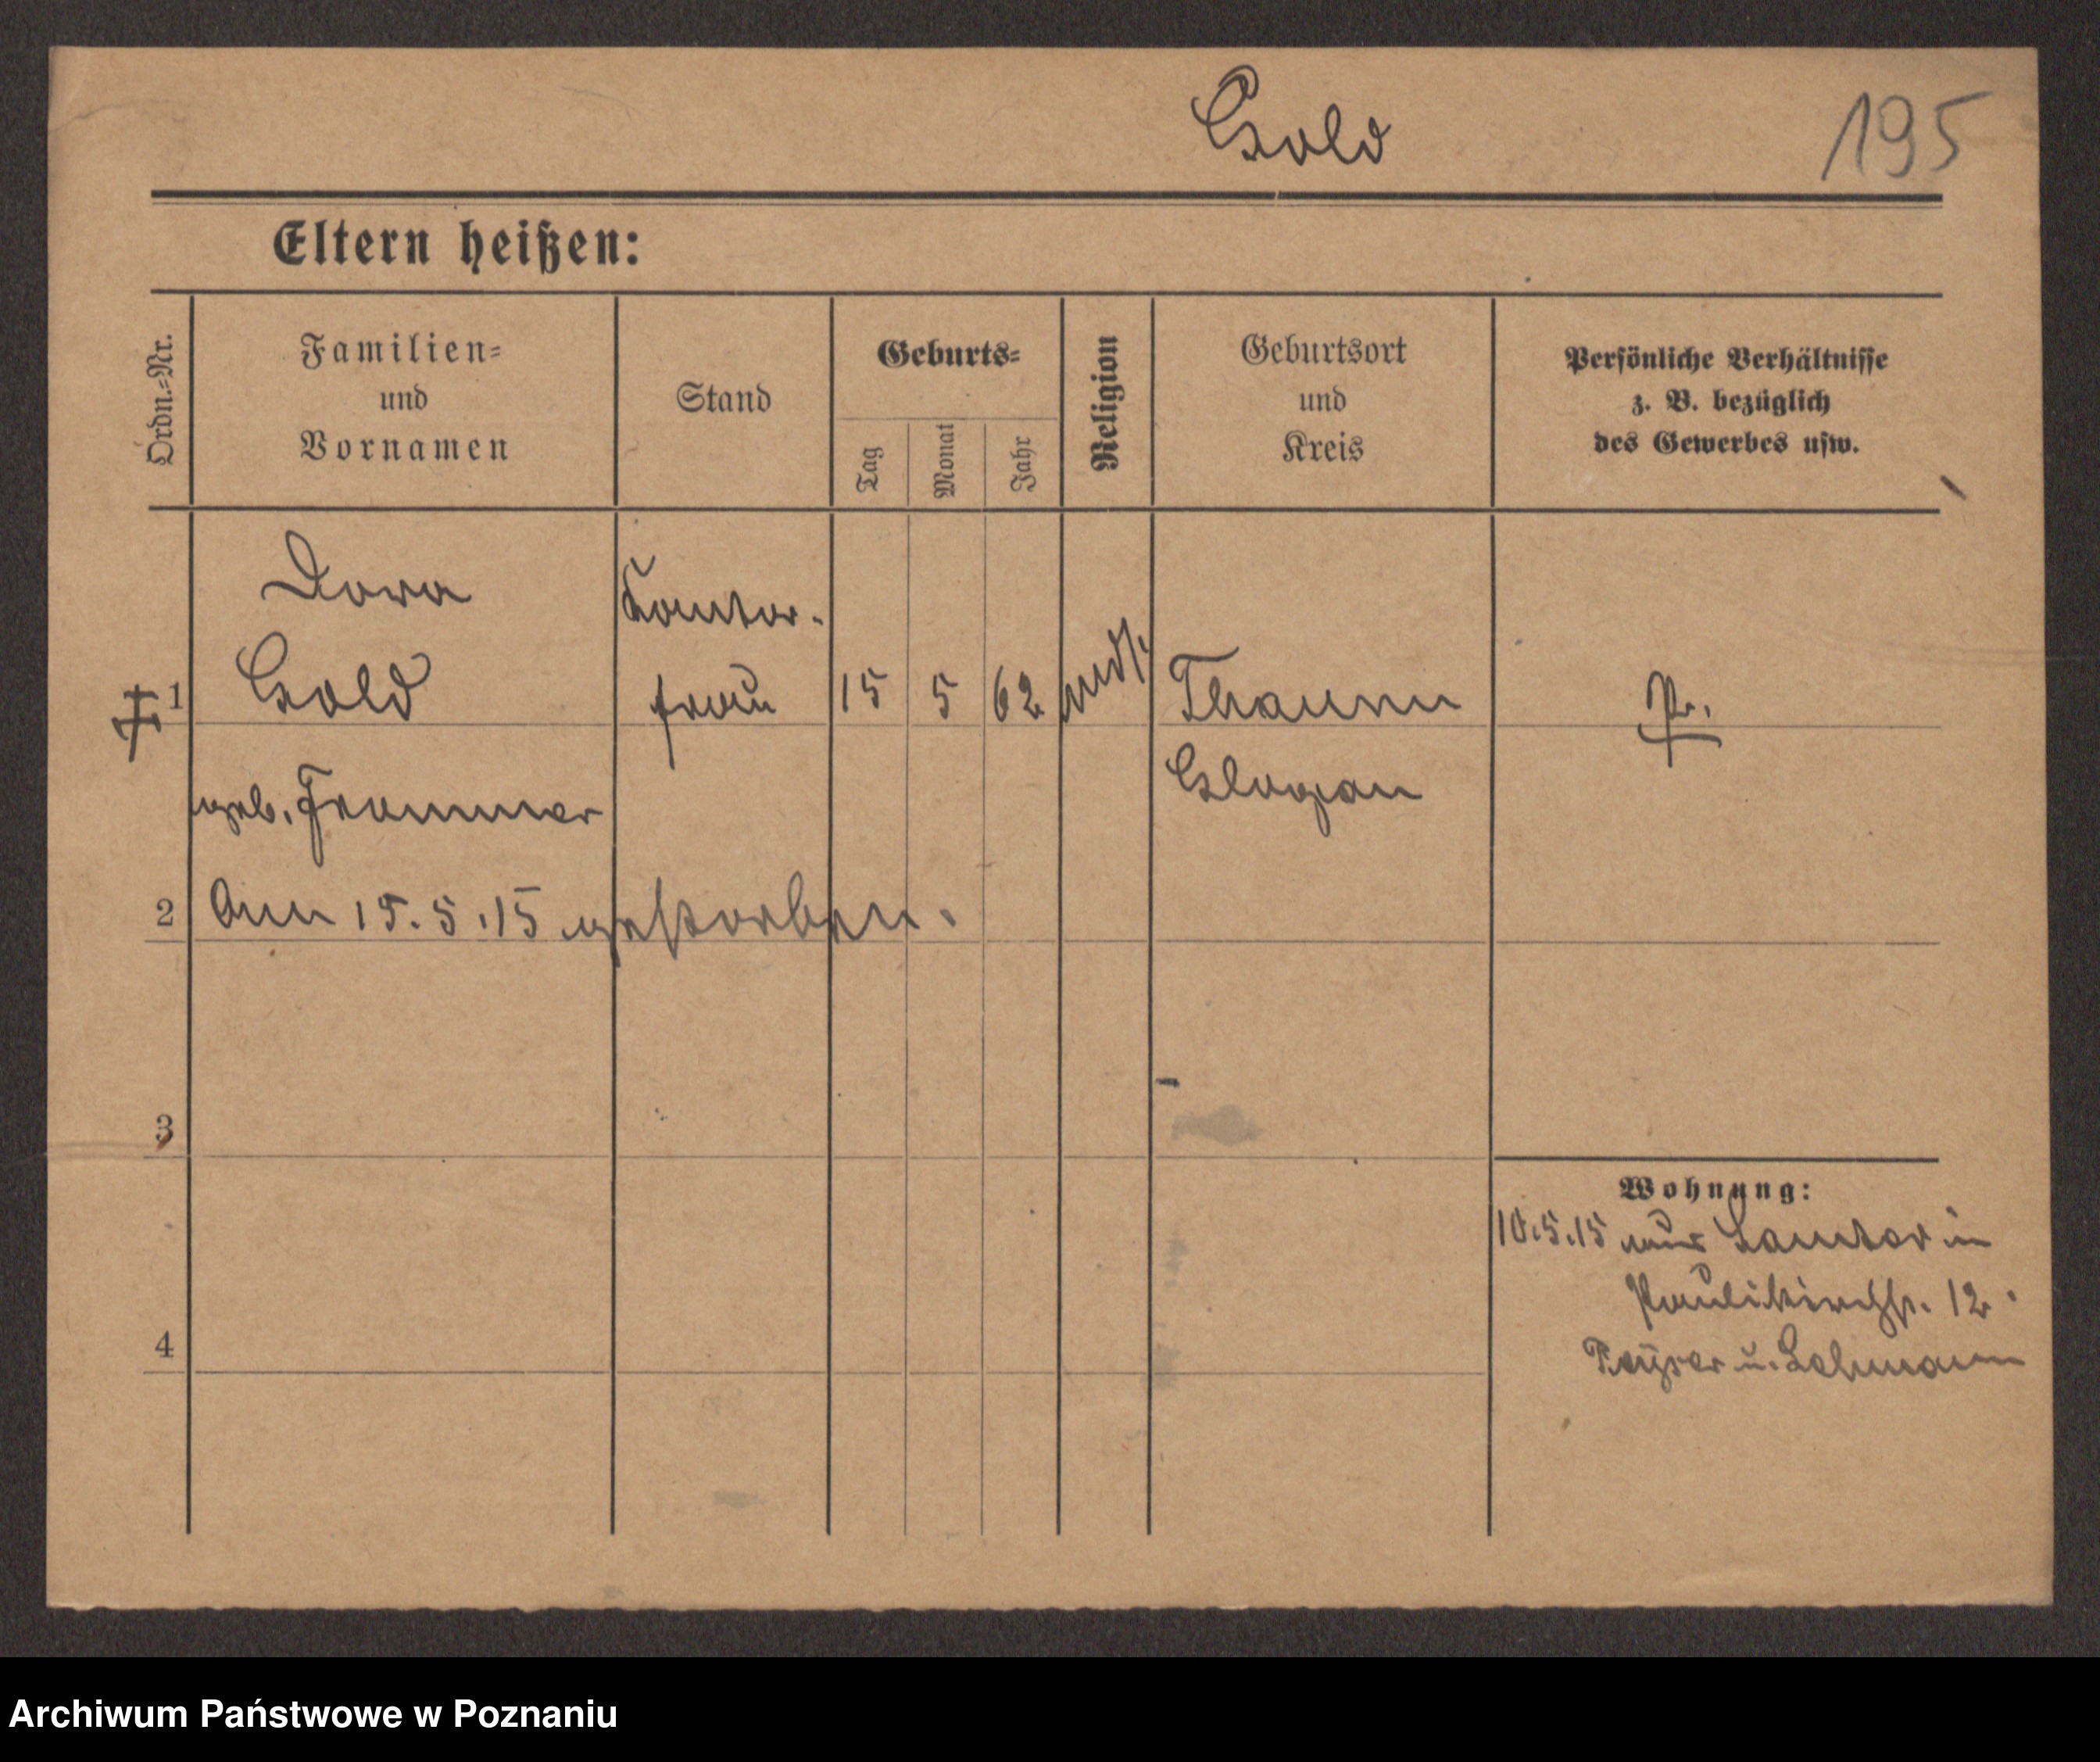 Gold 195
Eltern heißen:
Ordn.=Nr.
Familien=
und
Vornamen
Stand
Geburts=
Tag
Monat
Jahr
Religion
Geburtsort
und
Kreis
Persönliche Verhältnisse
z. B. bezüglich
des Gewerbes usw.
Dora Kantor-
1 Gold frau 15 5 62 Pr.
geb. Glogau
2 Am 15.5.15 gestorben.
3
4
Wohnung:
10.5.15 Kantor in
Paulikirchstr. 12.
u. Lehmann
Archiwum Państwowe w Poznaniu